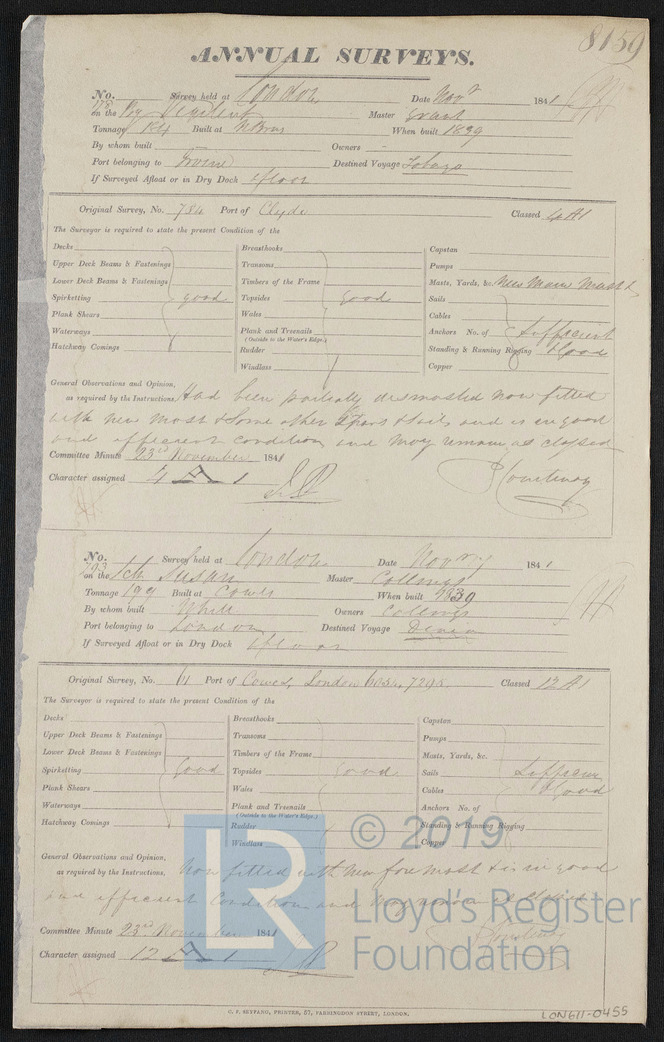 8159
ANNUAL SURVEYS.
No. 178 Survey held at London Date Nov 2 1841
on the Bg Vigilant Master Grant
Tonnage 184 Built at When built 1839
By whom built Owners -
Port belonging to Irvine Destined Voyage Tobago
If Surveyed Afloat or in Dry Dock afloat
Original Survey, No. 784 Port of Clyde Classed 4 A1
The Surveyor is required to state the present Condition of the
Decks Breasthooks Capstan
Upper Deck Beams & Fastenings Transoms Pumps
Lower Deck Beams & Fastenings Timbers of the Frame Masts, Yards, &c. New Main Mast &
Spirketting good Topsides Good Sails
Plank Shears Wales Cables
Waterways Plank and Treenails Anchors No. of Sufficient
(Outside to the Water's Edge.)
Hatchway Comings Rudder Standing & Running Rigging & Good
Windlass Copper
General Observations and Opinion,
as required by the Instructions. Had been partially dismasted now fitted
with new mast & some other Spars & Sails and is in good
and efficient condition and may remain as classed
Committee Minute 23rd November 1841
Character assigned 4 A 1
Courtenay
No. 793 Survey held at London Date Nov 1841
on the Sch Susan Master Collings
Tonnage 199 Built at Cowes When built 1839
By whom built White Owners Collings
Port belonging to London Destined Voyage
If Surveyed Afloat or in Dry Dock afloat
Original Survey, No. 61 Port of Cowes, London 6034, 7295 Classed 12 A1
The Surveyor is required to state the present Condition of the
Decks Breasthooks Capstan
Upper Deck Beams & Fastenings Transoms Pumps
Lower Deck Beams & Fastenings Timbers of the Frame Masts, Yards, &c.
Spirketting Good Topsides Good Sails Sufficient
Plank Shears Wales Cables & Good
Waterways Plank and Treenails Anchors No. of
(Outside to the Water's Edge.)
Hatchway Comings Rudder Standing & Running Rigging
Windlass Copper
General Observations and Opinion,
as required by the Instructions. Now fitted with new fore mast & is in good
and efficient Condition and may remain as Classed
Committee Minute 23rd November 1841
Character assigned 12 A 1
Courtenay
C. F. SEYFANG, PRINTER, 57, FARRINGDON STREET, LONDON.
LON611-0455
LR
© 2019
Lloyd's Register
Foundation